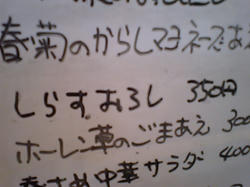 春菊のからしマヨネーズあ
しらすおろし 350円
ホーレン草のごまあえ 300
春さめ中華サラダ 400